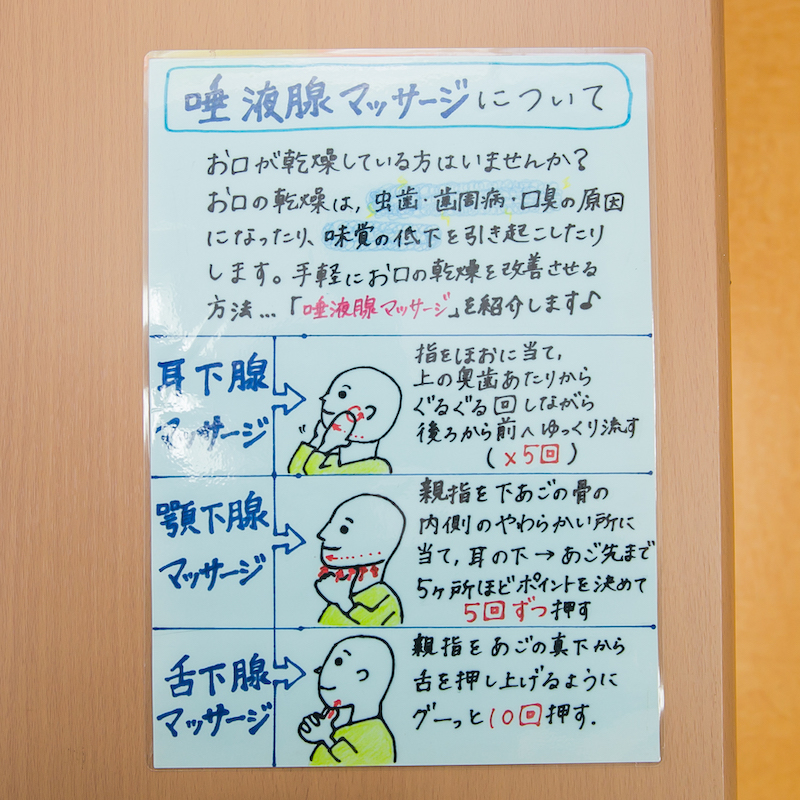 唾液腺マッサージについて
お口が乾燥している方はいませんか?
お口の乾燥は,虫歯・歯周病・口臭の原因
になったり、味覚の低下を引き起こしたり
します。手軽にお口の乾燥を改善させる
方法…「唾液腺マッサージ」を紹介します♪
耳下腺
マッサージ
指をほおに当て,
上の奥歯あたりから
ぐるぐる回しながら
後ろから前へゆっくり流す
(×5回)
顎下腺
マッサージ
親指を下あごの骨の
内側のやわらかい所に
当て,耳の下→あご先まで
5ヶ所ほどポイントを決めて
5回ずつ押す
舌下腺
マッサージ
親指をあごの真下から
舌を押し上げるように
グーっと10回押す.